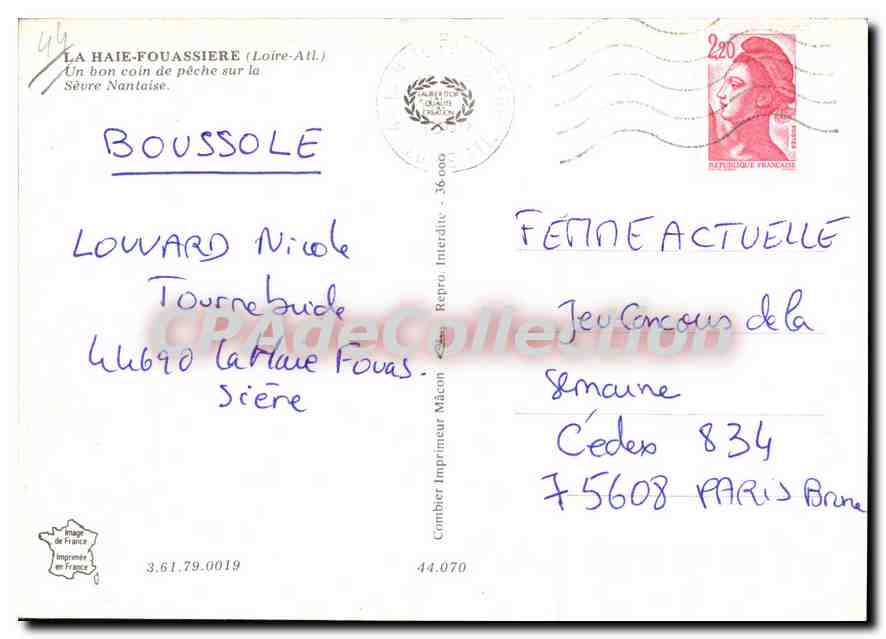 44
LA HAIE-FOUASSIERE (Loire-Atl.)
Un bon coin de pêche sur la
Sèvre Nantaise.
LABEL D'OR
QUALITÉ
CRÉATION
2,20
POSTES
REPUBLIQUE FRANÇAISE
BOUSSOLE
LOUVARD Nicole
Tournebride
44690 La Haie Fouas-
sière
Combier Imprimeur Mâcon Repro. Interdite - 36 000
FEMME ACTUELLE
Jeu Concours de la
semaine
Cédex 834
75608 PARIS Brune
CPAdeCollection
Image
de France
Imprimée
en France
3.61.79.0019
44.070